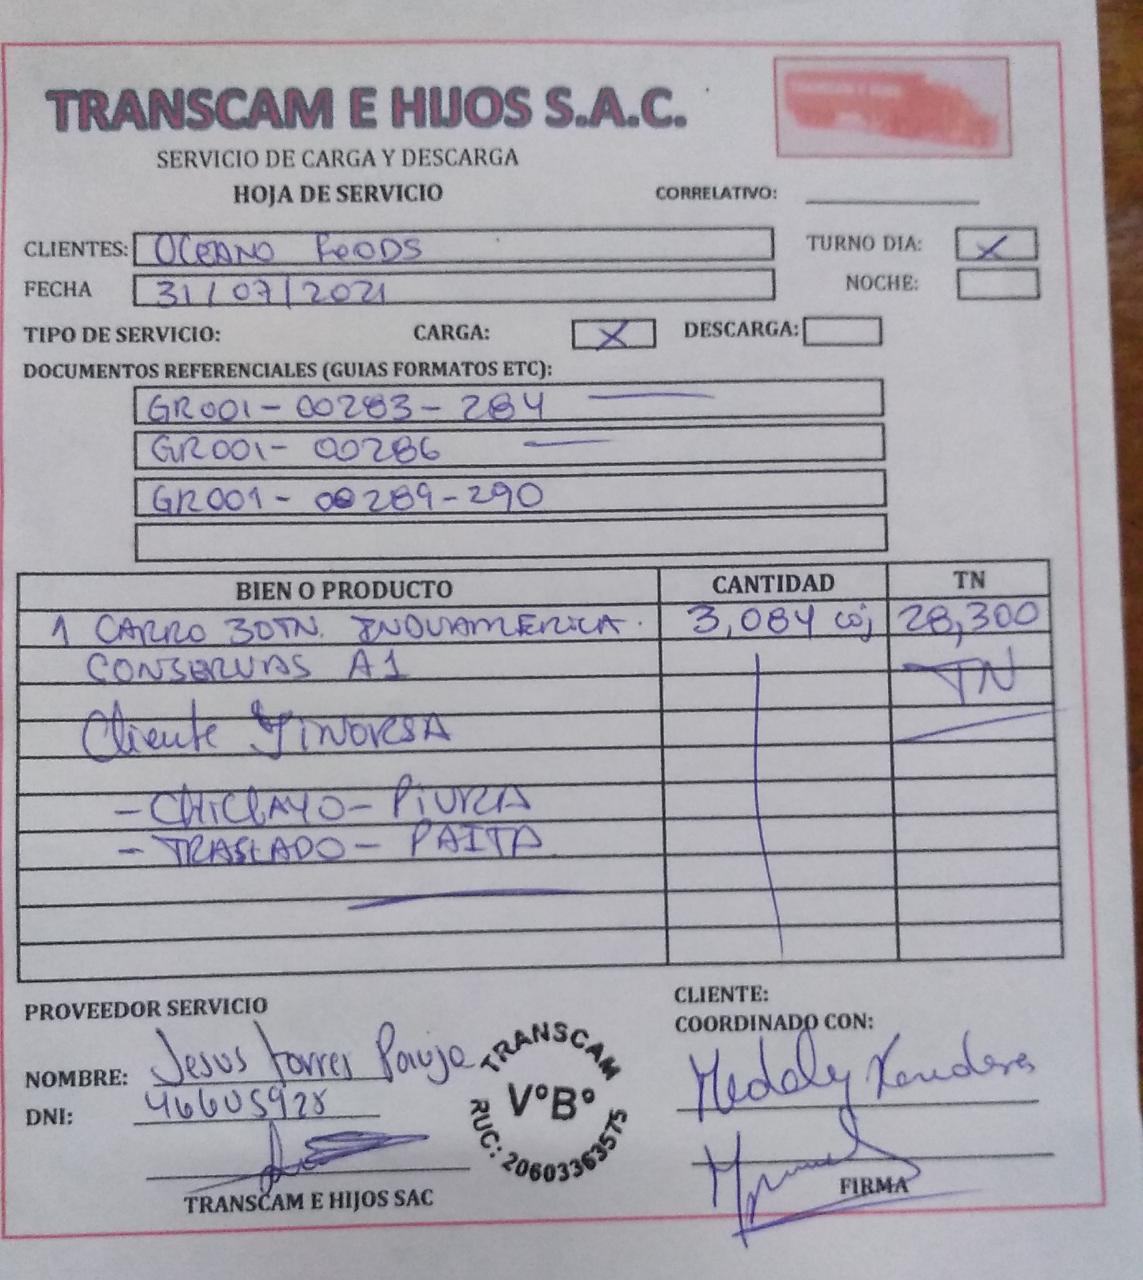 TRANSCAM E HIJOS S.A.C.
SERVICIO DE CARGA Y DESCARGA
HOJA DE SERVICIO
CORRELATIVO:
CLIENTES: OCEANO FOODS
TURNO DIA: X
FECHA 31/07/2021
NOCHE:
TIPO DE SERVICIO: CARGA: X DESCARGA:
DOCUMENTOS REFERENCIALES (GUIAS FORMATOS ETC):
GR001-00283-284
GR001-00286
GR001-00289-290
BIEN O PRODUCTO CANTIDAD TN
1 CARRO 30TN. INDUAMERICA. 3,084 cj 28,300
CONSERVAS A1 TN
Cliente
- CHICLAYO - PIURA
- TRASLADO - PAITA
PROVEEDOR SERVICIO
CLIENTE:
COORDINADO CON:
NOMBRE: Jesus Torres
DNI: 46605928
TRANSCAM
V°B°
RUC: 20603363575
TRANSCAM E HIJOS SAC
FIRMA